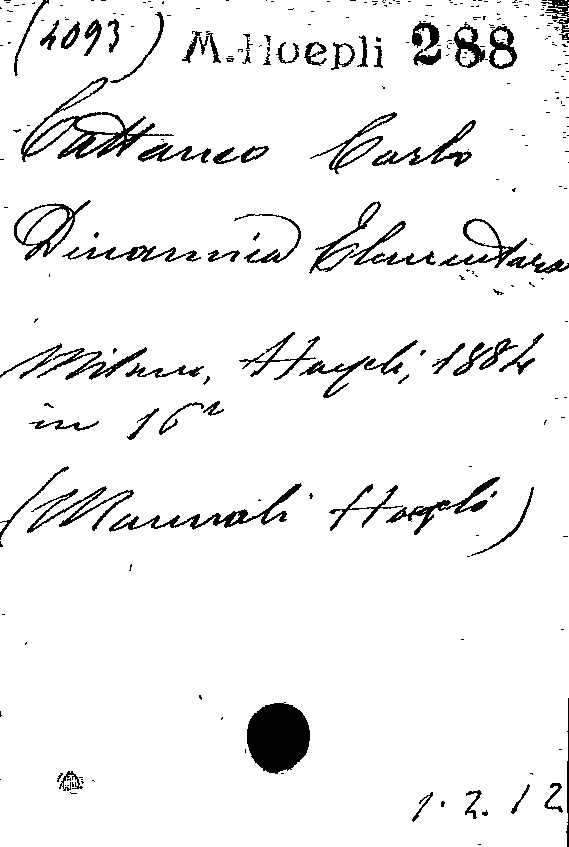 (4093) M. Hoepli 288
Cattaneo Carlo
Dinamica Elementare
Milano, Hoepli, 1884
in 16º
(Manuali Hoepli)
1.2.12